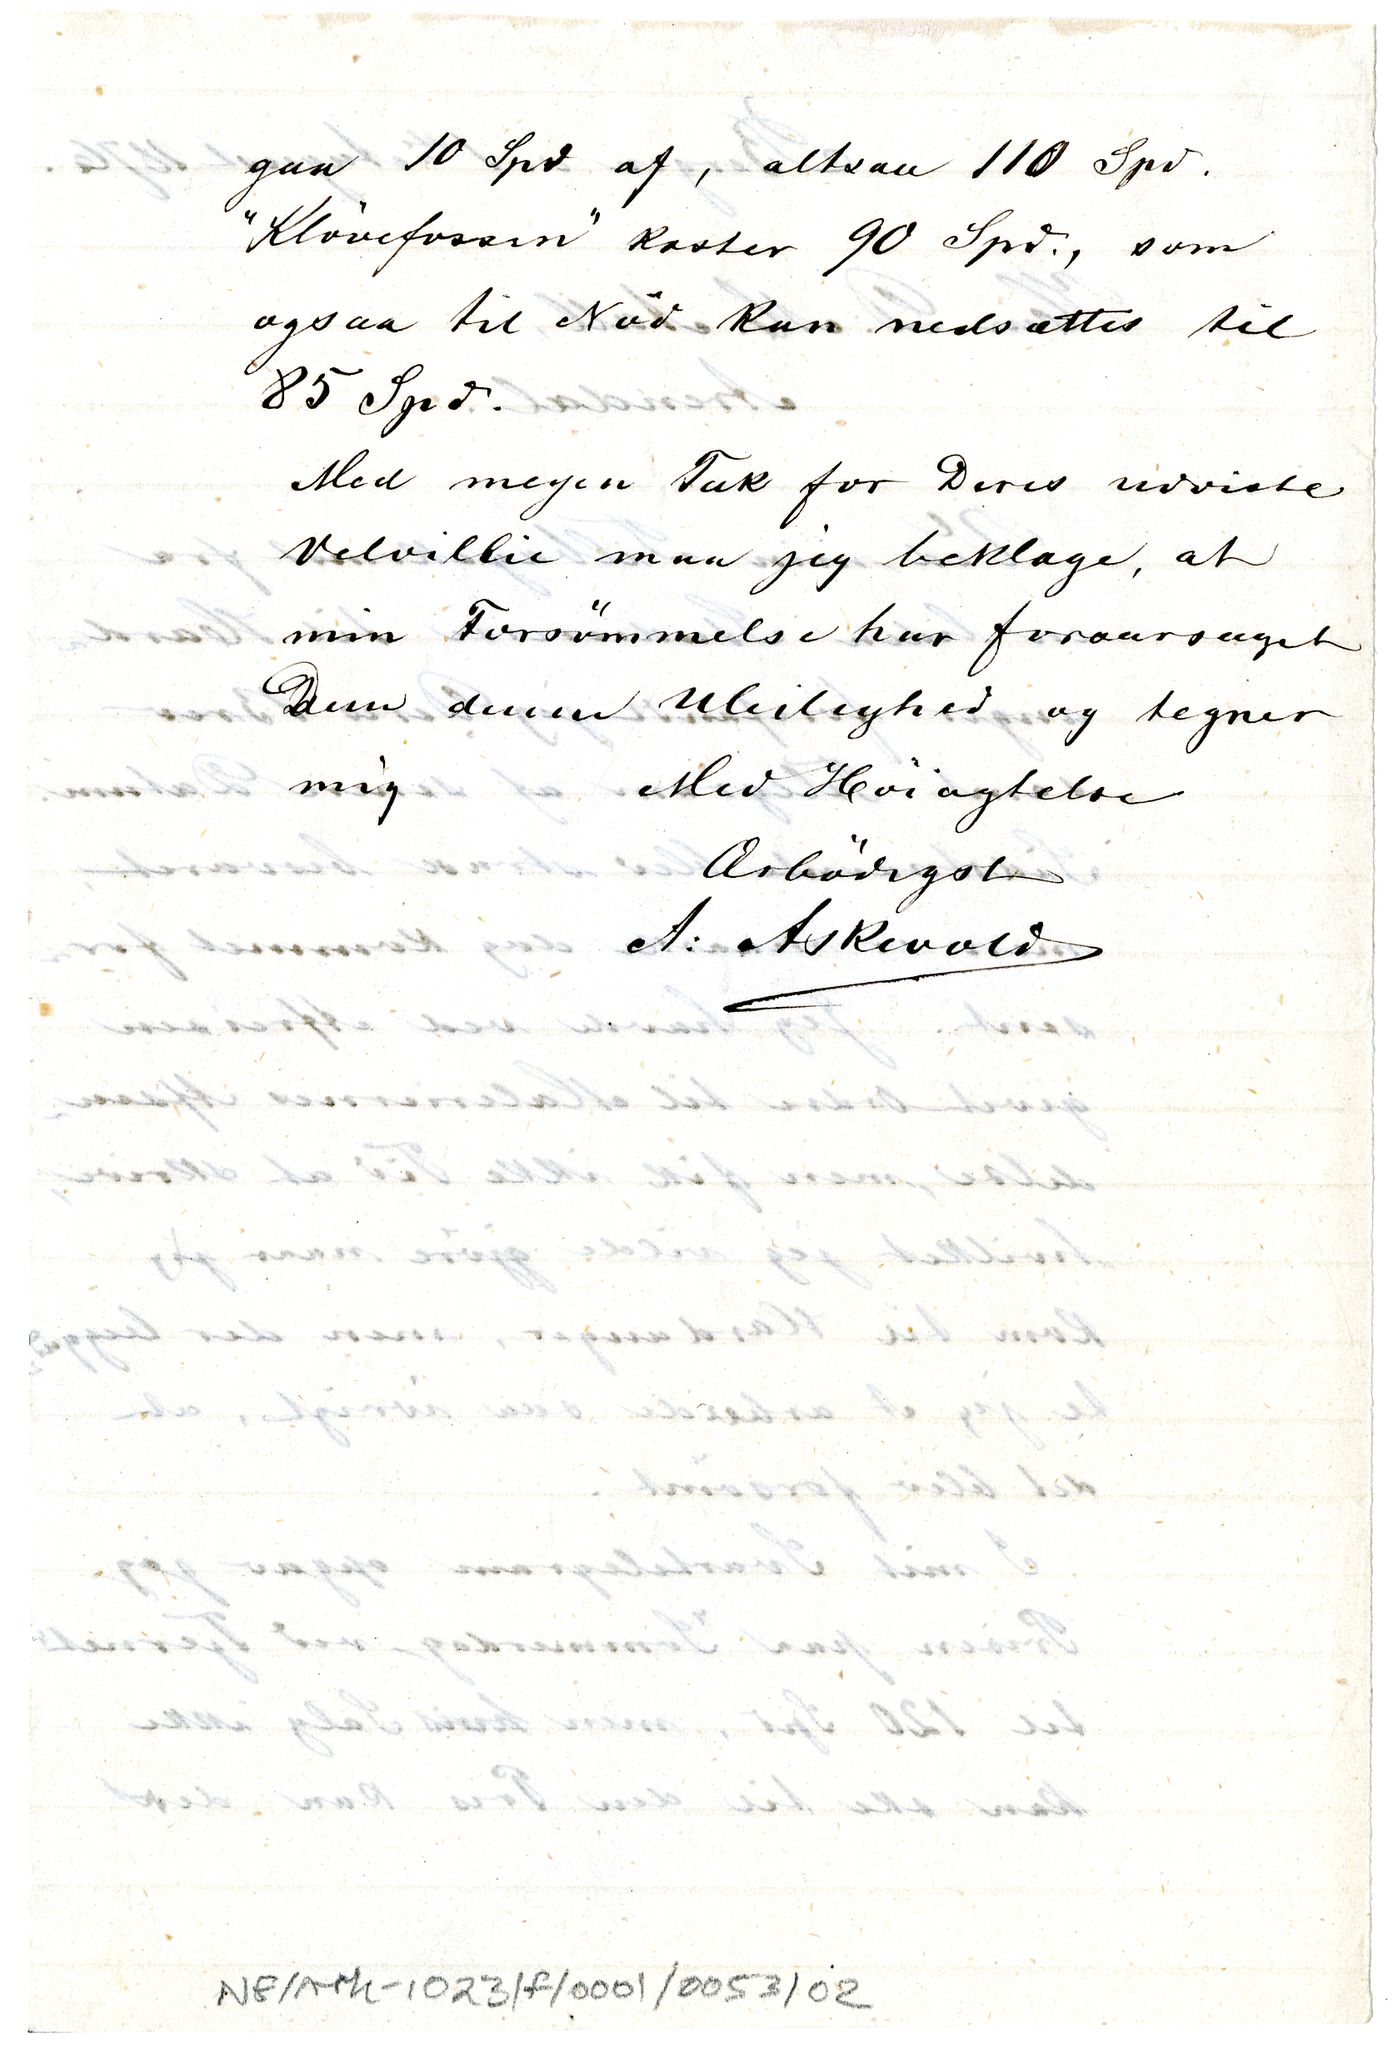 gaa 10 Spd af, altsaa 110 Spd.
"Klövefossen" koster 90 Spd., som
ogsaa til Nöd kan nedsættes til
85 Spd.
Med megen Tak for Deres udviste
Velvillie maa jeg beklage, at
min Forsömmelse har foraarsaget
Dem denne Uleilighed og tegner
mig Med Höiagtelse
Ærbödigst
A: Askevold
NE/Ark-1023/f/0001/0053/02